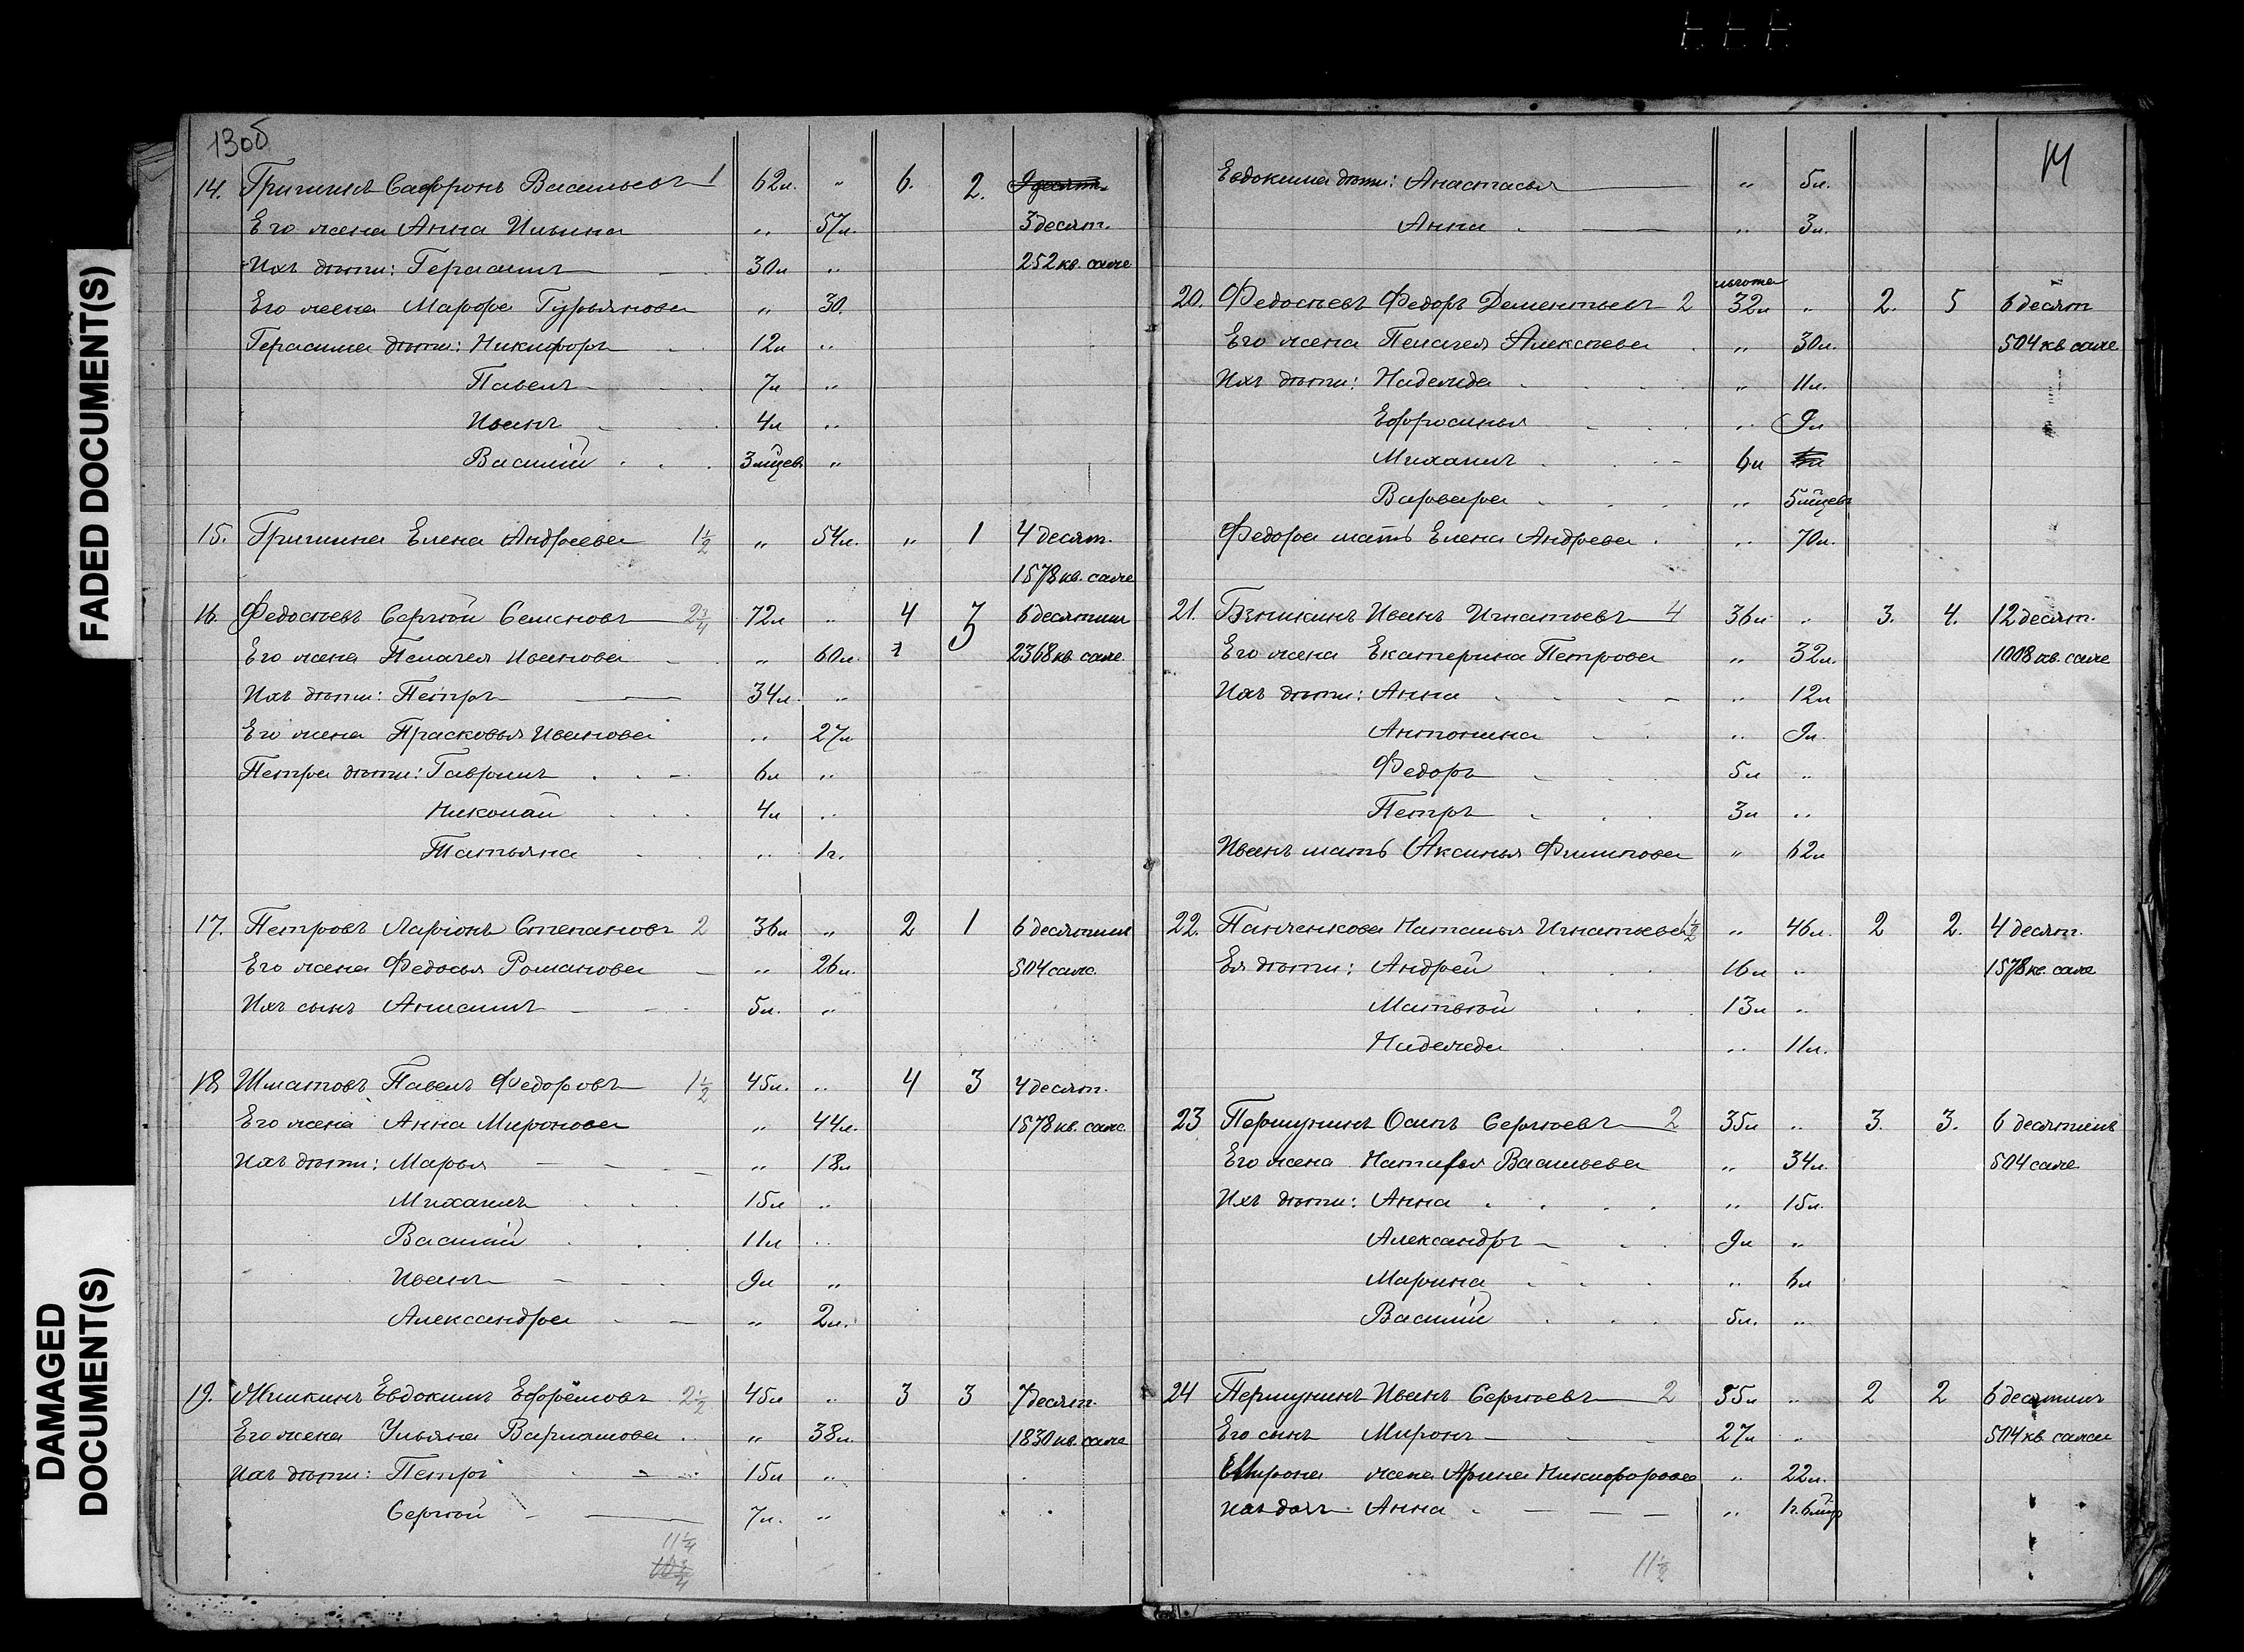 FADED DOCUMENT(S)
DAMAGED
DOCUMENT(S)
13об
14. Гришинъ Сафронъ Васильевъ 1 62л. „ 6. 2. 9 десят.
Его жена Анна Ильина „ 57л. 3 десят.
Ихъ дѣти: Герасимъ 30л „ 252 кв. саж
Его жена Марфа Гурьянова „ 30.
Герасима дѣти: Никифоръ 12л „
Павелъ 7л „
Иванъ 4л „
Василій 3 мѣсцев „
15. Гришина Елена Андреева 1½ „ 54л. „ 1 4 десят.
1578 кв. саж
16. Федосѣевъ Сергѣй Семеновъ 2¾ 72л „ 4 3 6 десятин
Его жена Пелагея Иванова „ 60л. 2368 кв. саж.
Ихъ дѣти: Петръ 34л. „
Его жена Прасковья Иванова „ 27л
Петра дѣти: Гавріилъ 6л „
Николай 4л „
Татьяна „ 1г.
17. Петровъ Ларіонъ Степановъ 2 36л „ 2 1 6 десятинъ
Его жена Федосья Романова „ 26л. 504 саж.
Ихъ сынъ Анисимъ 5л. „
18 Шматовъ Павелъ Федоровъ 1½ 45л. „ 4 3 4 десят.
Его жена Анна Миронова „ 44л. 1578 кв. саж.
Ихъ дѣти: Марья „ 18л
Михаилъ 15л „
Василій 11л „
Иванъ 9л „
Александра „ 2л.
19. Мишкинъ Евдокимъ Ефремовъ 2½ 45л „ 3 3 7 десят.
Его жена Ульяна Варламова „ 38л. 1830 кв. саж
Ихъ дѣти: Петръ 15л „
Сергѣй 7л. „
11¼
10¾
14
Евдокима дѣти: Анастасья „ 5л.
Анна „ 3л.
льгота
20. Федосѣевъ Федоръ Дементьевъ 2 32л „ 2. 5 6 десят
Его жена Пелагея Алексѣева „ 30л. 504 кв саж
Ихъ дѣти: Надежда „ 11л.
Ефросинья „ 9л
Михаилъ 6л
Варвара „ 5 мѣсцев
Федора мать Елена Андреева „ 70л.
21. Бзникинъ Иванъ Игнатьевъ 4 36л „ 3. 4. 12 десят.
Его жена Екатерина Петрова „ 32л. 1008 кв. саж
Ихъ дѣти: Анна „ 12л
Антонина „ 9л.
Федоръ 5л „
Петръ 3л „
Иванъ мать Аксинья Филипова „ 62л
22. Панченкова Наталья Игнатьева ½ „ 46л. 2 2. 4 десят.
Ея дѣти: Андрей 16л „ 1578 кв. саж
Матвѣй 13л „
Надежда „ 11л.
23 Першунинъ Осипъ Сергѣевъ 2 35л „ 3. 3. 6 десятинъ
Его жена Наталья Васильева „ 34л 504 саж
Ихъ дѣти: Анна „ 15л.
Александръ 9л „
Марина „ 6л
Василій 5л. „
24 Першунинъ Иванъ Сергѣевъ 2 55л „ 2 2 6 десятинъ
Его сынъ Миронъ 27л „ 504 кв. сажен
Мирона жена Арина Никифорова „ 22л.
Ихъ дочь Анна „ 1г. 6 мѣс
11½